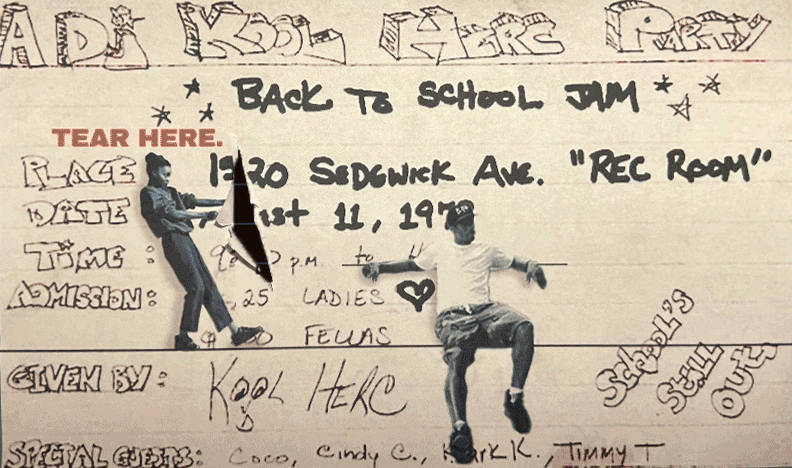 A DJ KOOL HERC PARTY
BACK TO SCHOOL JAM
TEAR HERE.
PLACE SEDGWICK AVE. "REC ROOM"
DATE 11,
TIME : P.M. to
ADMISSION: 25 LADIES
FELLAS
GIVEN BY: KOOL HERC
SCHOOL'S
STILL
OUT.
SPECIAL GUESTS: COCO, CINDY C., K., TIMMY T